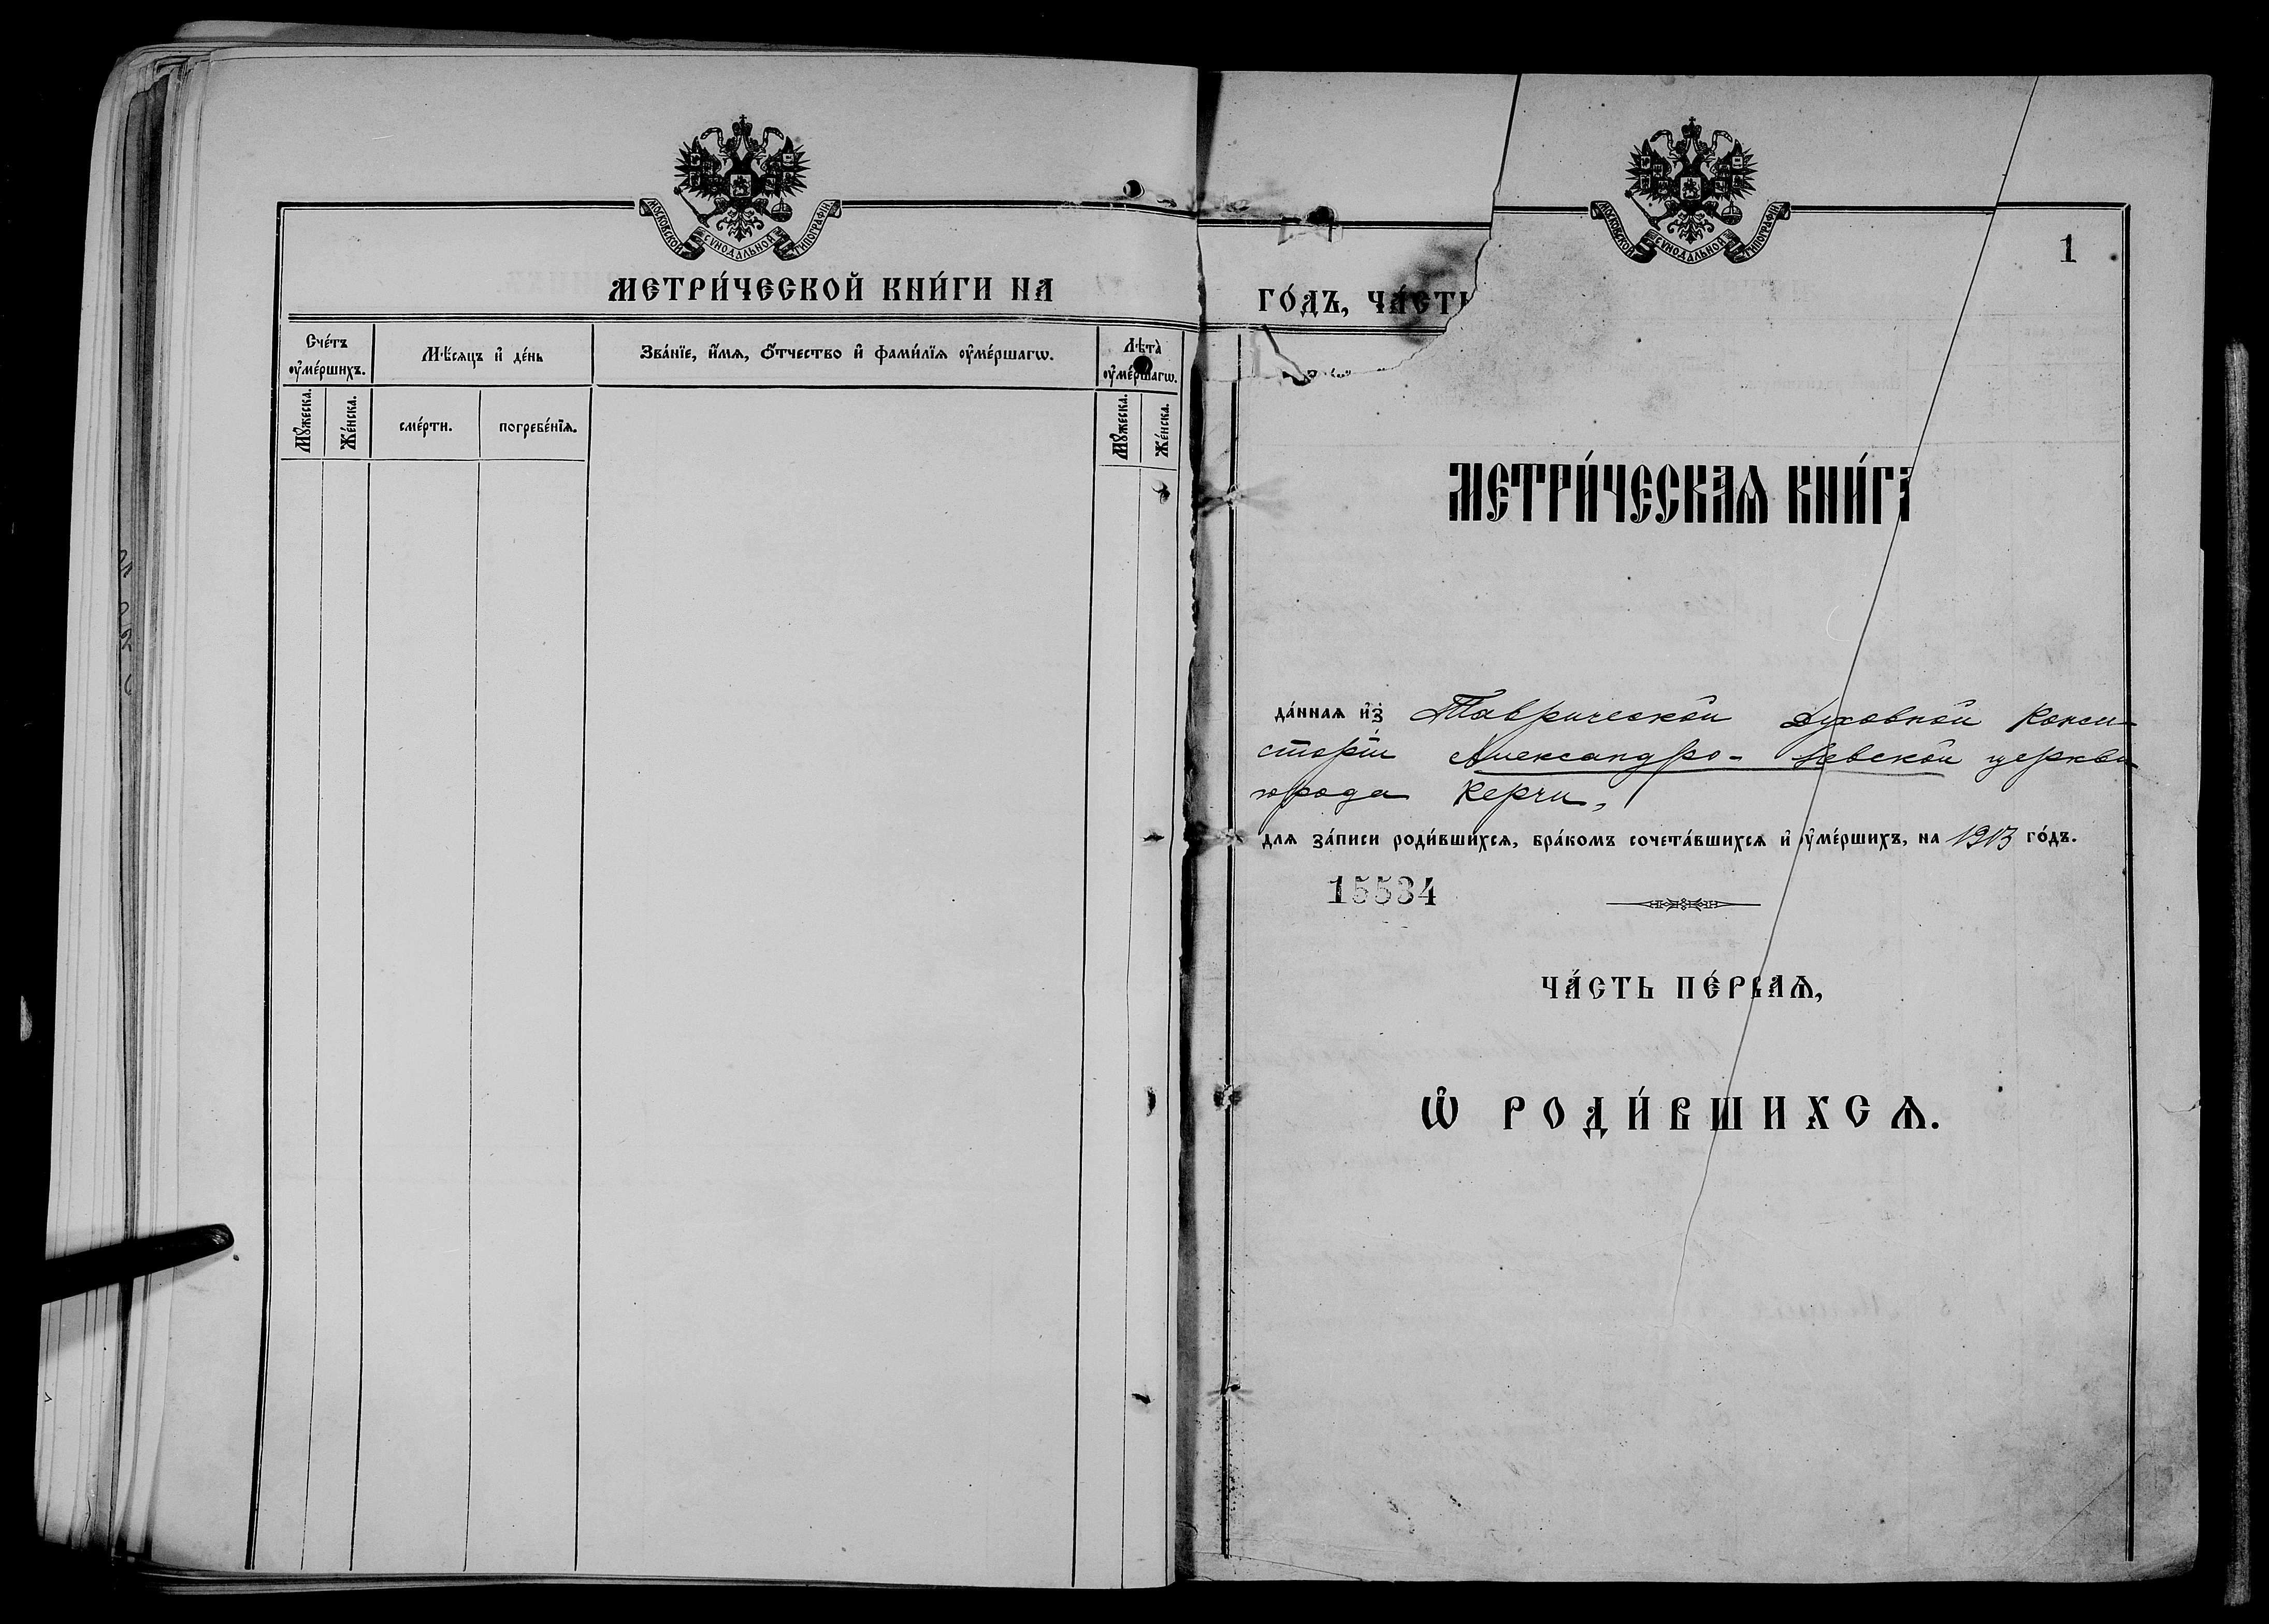 МОСКОВСКОЙ СѴНОДАЛЬНОЙ ТИПОГРАФІИ
МЕТРИ́ЧЕСКОЙ КНИ́ГИ НА
Сче́тъ ᲂу҆ме́ршихъ.
Мѣ́сяцъ и҆ де́нь
Зва́нїе, и҆́мѧ, ѻ҆́тчество и҆ фами́лїѧ ᲂу҆ме́ршагѡ.
Лѣ́та ᲂу҆ме́ршагѡ.
Мꙋ́жеска.
Же́нска.
сме́рти.
погребе́нїѧ.
Мꙋ́жеска.
Же́нска.
ГО́ДЪ, ЧА́СТЬ
МОСКОВСКОЙ СѴНОДАЛЬНОЙ ТИПОГРАФІИ
1
МЕТРИ́ЧЕСКАѦ КНИ́ГА
да́ннаѧ и҆з̾ Таврической Духовной Конси-
сторіи Александро-Невской церкви
города Керчи,
для за́писи роди́вшихсѧ, бра́комъ сочета́вшихсѧ и҆ ᲂу҆ме́ршихъ, на 1913 го́дъ.
15534
ЧА́СТЬ ПЕ́РВАѦ,
Ѽ РОДИ́ВШИХСѦ.